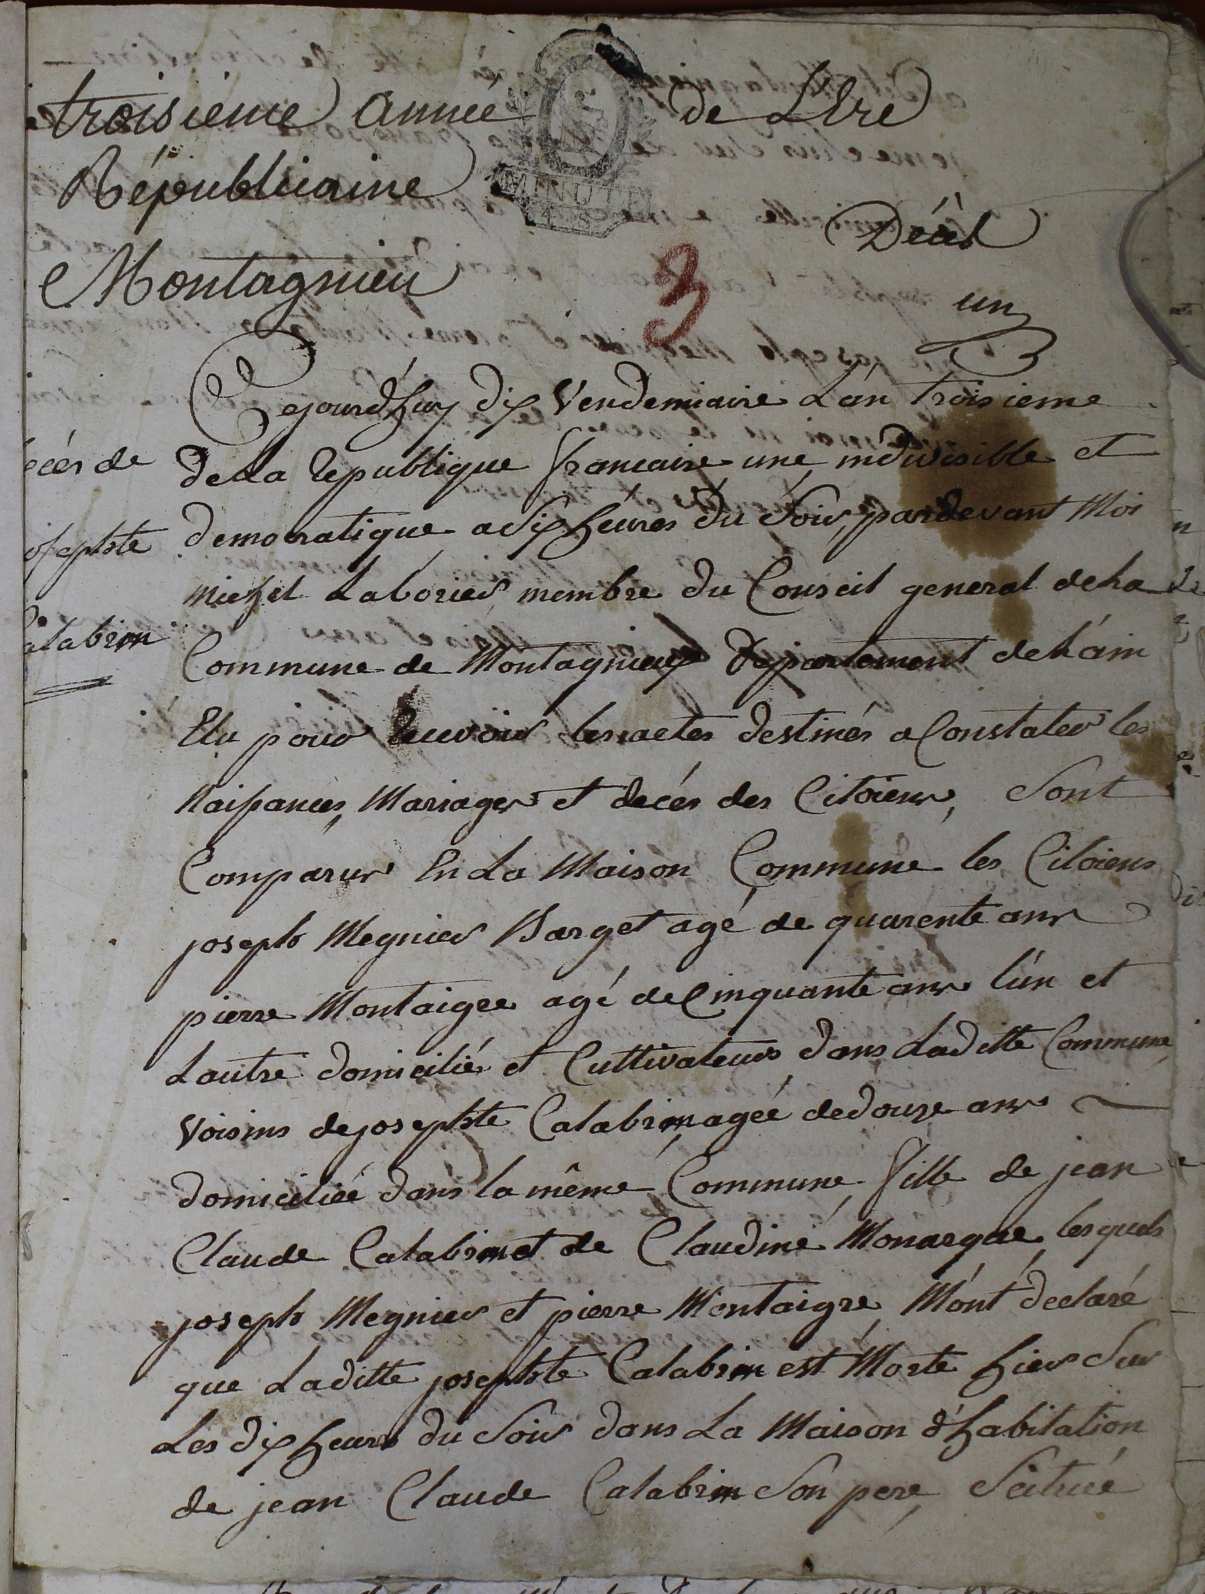 troisieme année de L'Ere
Républicaine
MINUTE
Décès
Montagnieu
3
un
Cejourd'huy dix Vendemiaire L'an troisieme
decès de
de la Republique francaise une indivisible et
josephte
democratique a six heures du Soir, pardevant Moi
Calabrin
michel Laborier membre du Conseil general de la
Commune de Montagnieux Departement de L'ain
Elu pour recevoir les actes destinés a Constater les
Naissances, Mariages et decés des Citoiens, Sont
Comparus En La Maison Commune les Citoiens
joseph Megnier Barget agé de quarente ans
pierre Montaigre agé de Cinquante ans l'un et
Lautre domiciliés et Cultivateurs dans Laditte Commune
Voisins de josephte Calabrin agée de douze ans
domiciliée dans la même Commune, fille de jean
Claude Calabrin et de Claudine Monarque, lesquels
joseph Megnier et pierre Montaigre, M'ont declaré
que Laditte josephte Calabrin est Morte hier Sur
Les dix heures du Soir dans La Maison d'habitation
de jean Claude Calabrin Son pere, Scituée